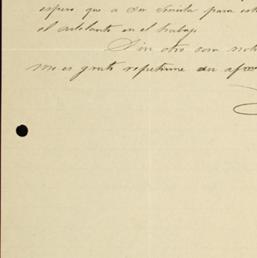 espero que a su servita para est
el adelanto en el trabajo
Sin otro com not
me es grato repetirme su afmo